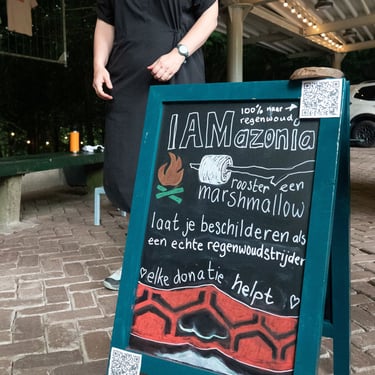 100% naar →
regenwoud
IAMazonia
rooster een
marshmallow
laat je beschilderen als
een echte regenwoudstrijder
♡ elke donatie helpt ♡